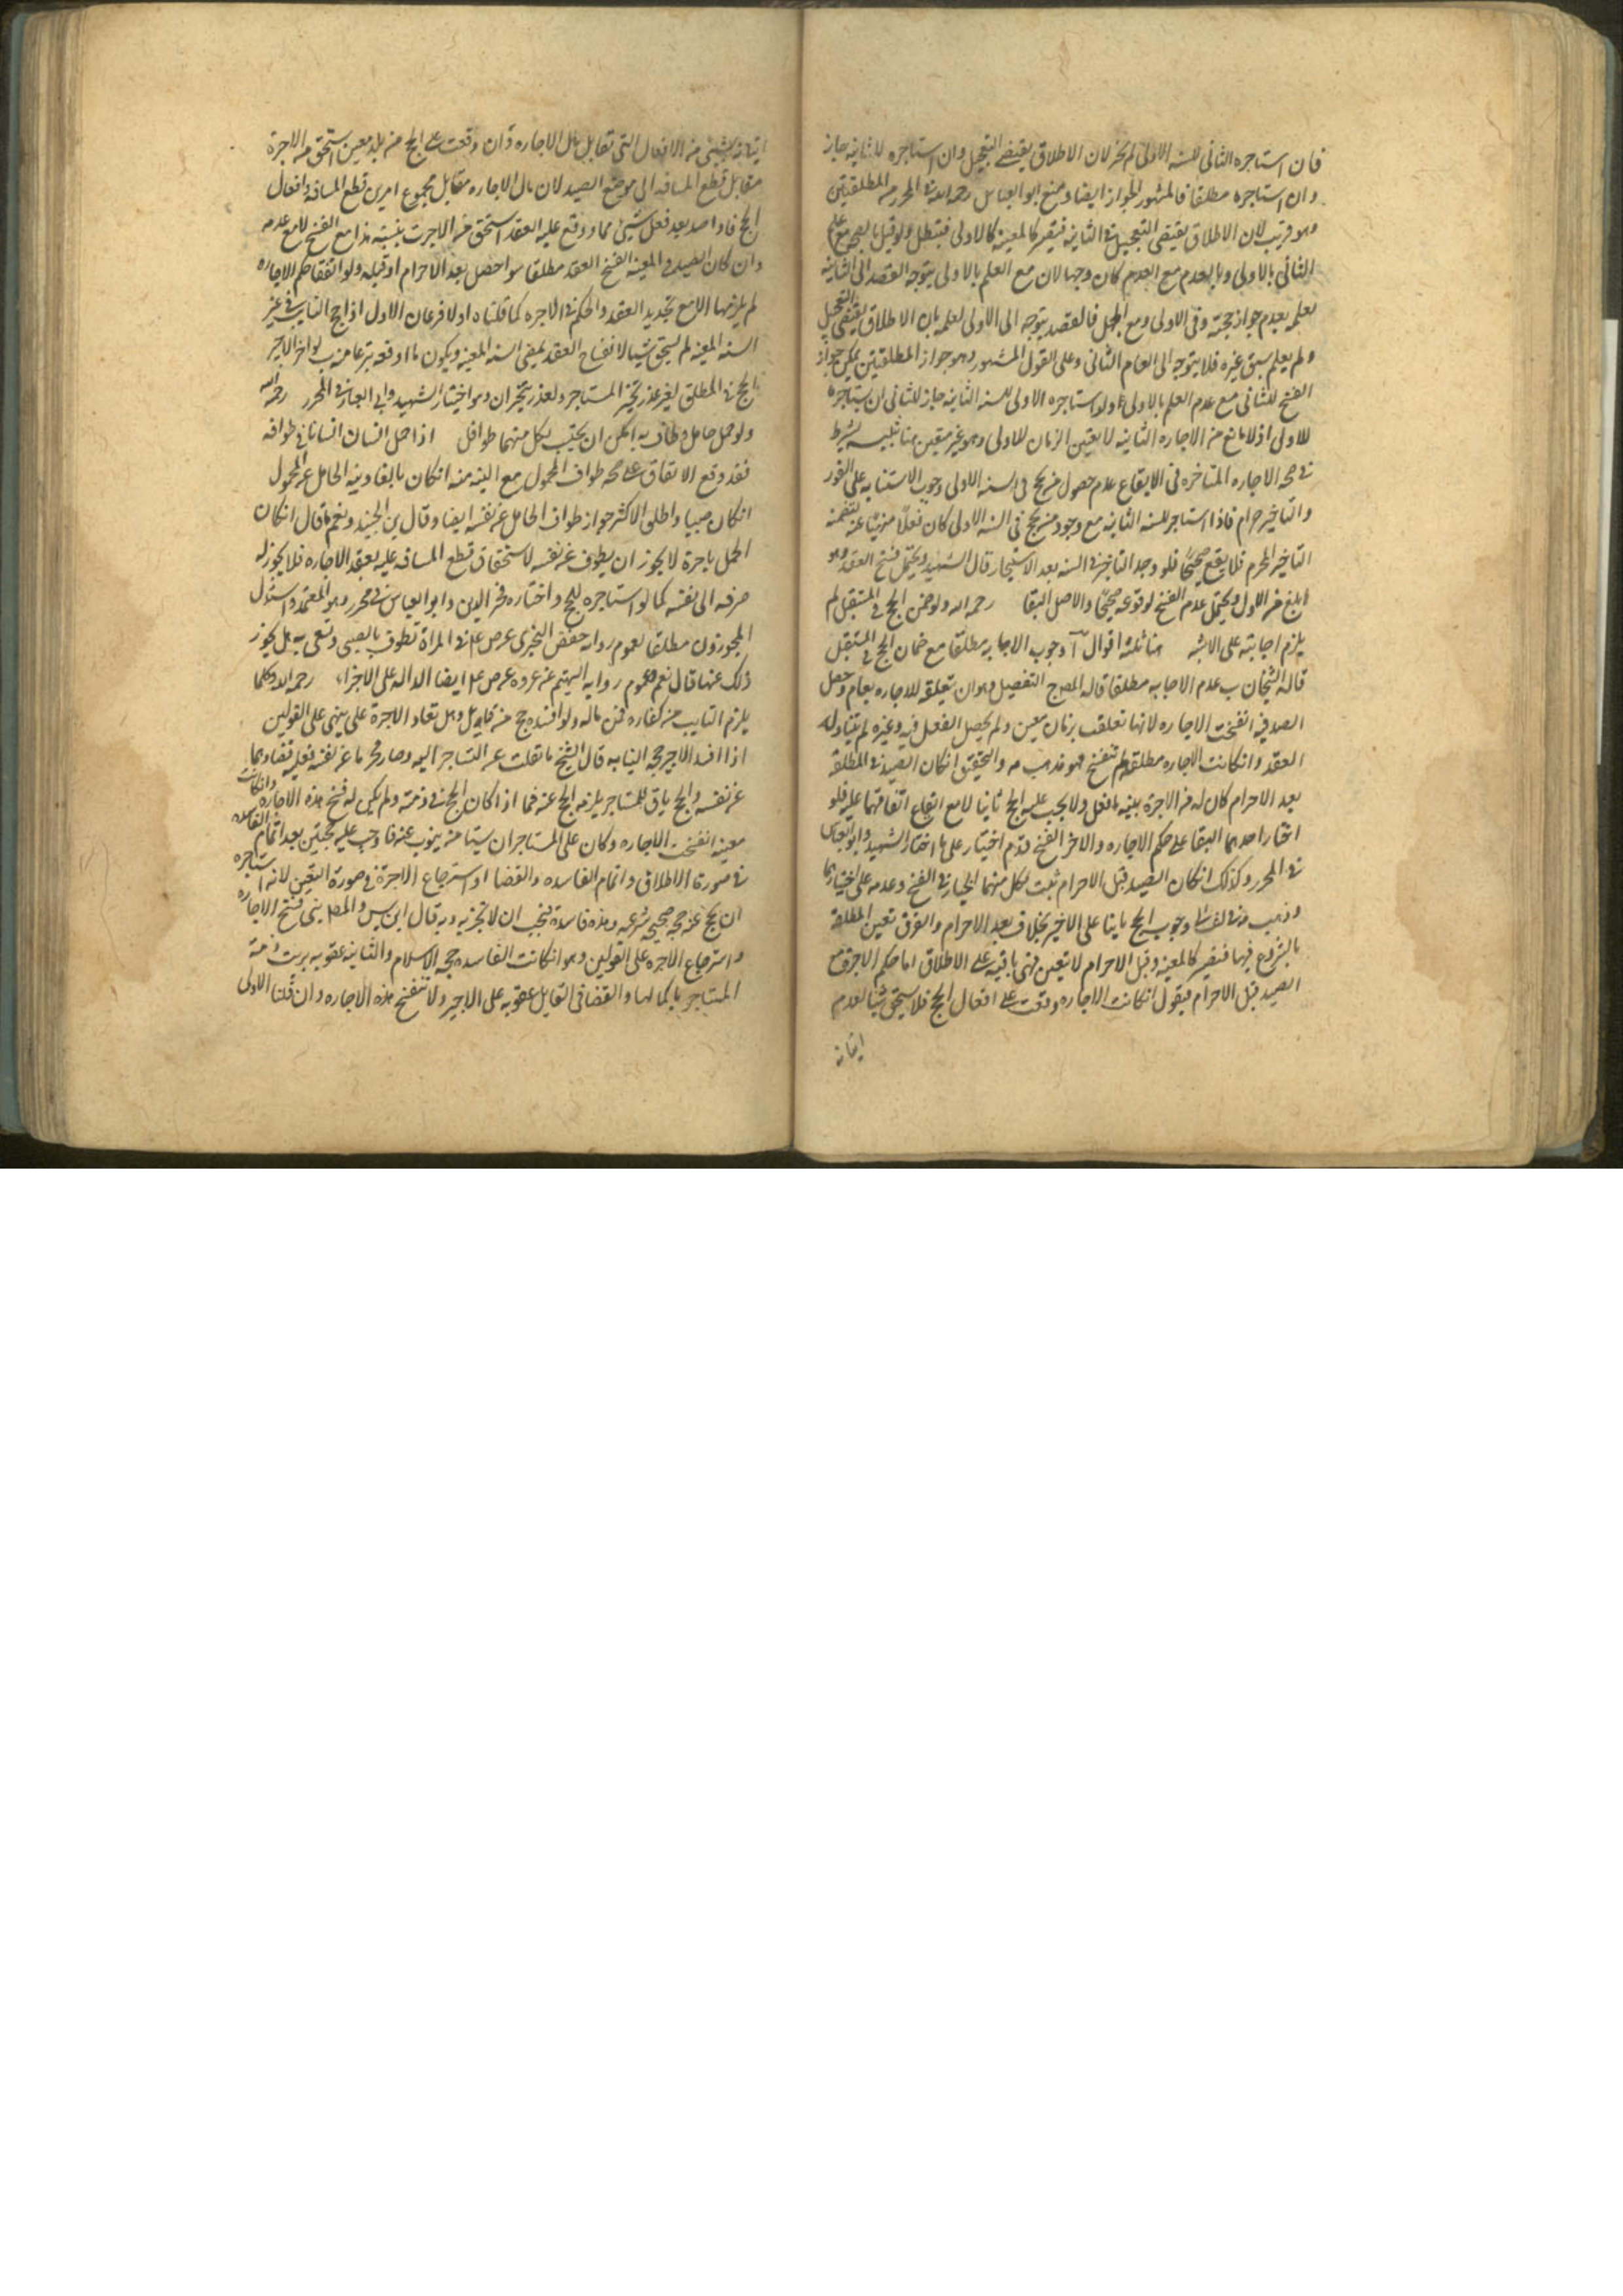 فان استاجره الثانى للسنه الاولى لم يجز لان الاطلاق يقتضى التعجيل وان استاجره للثانيه جاز
وان استاجره مطلقا فالمشهور الجواز ايضا ومنع ابو العباس رحمه الله فى المحرر من المطلقتين
وهو قريب لان الاطلاق يقتضى التعجيل فى الثانيه فيصير كالمعينه كالاولى فتبطل ولو قيل بالصح مع علم
الثانى بالاولى وبالعدم مع العدم كان وجها لان مع العلم بالاولى يتوجه القصد الى الثانيه
لعلمه بعدم جواز حجته فى الاولى ومع الجهل فالقصد يتوجه الى الاولى لعلمه بان الاطلاق يقتضى التعجيل
ولم يعلم سبق غيره فلا يتوجه الى العام الثانى وعلى القول المشهور وهو جواز المطلقتين يمكن جواز
الفسخ للثانى مع عدم العلم بالاولى ولو استاجره الاولى للسنه الثانيه جاز للثانى ان يستاجره
للاولى اذ لا مانع من الاجاره الثانيه لا يعين الزمان للاولى وهو غير متعين هنا تنبيه يشترط
فى صحه الاجاره المتاخره فى الايقاع عدم حصول من يحج فى السنه الاولى لوجوب الاستنابه على الفور
والتاخير حرام فاذا استاجر للسنه الثانيه مع وجود من يحج فى السنه الاولى كان فعلا منهيا عنه لتضمنه
التاخير المحرم فلا يقع صحيحا فلو وجد التاخير فى السنه بعد الاستيجار قال الشهيد ويحتمل فسخ العقد وهو
ابلغ من الاول ويحتمل عدم الفسخ لوقوعه صحيحا والاصل البقا رحمه الله ولو ضمن الحج فى المستقبل لم
يلزم اجابته على الاشبه هنا ثلثه اقوال آ وجوب الاجابه مطلقا مع ضمان الحج فى المستقبل
قاله الشيخان ب عدم الاجابه مطلقا قاله المص ج التفصيل وهو ان تعلقه للاجاره بعام وحصل
الصد فيه انفسخت الاجاره لانها تعلقت بزمان معين ولم يحصل الفعل فيه وغيره لم يتناوله
العقد وان كانت الاجاره مطلقه لم تنفسخ فهو مذهب مه والتحقيق ان كان الصد فى المطلقه
بعد الاحرام كان له من الاجرة بنسبه ما فعل ولا يجب عليه الحج ثانيا لا مع ايقاع اتفاقهما عليه فلو
اختار احدهما البقا على حكم الاجاره والاخر الفسخ قدم اختيار على ما اختاره الشهيد وابو العباس
فى المحرر وكذلك ان كان الصد قبل الاحرام ثبت لكل منهما الخيار فى الفسخ وعدمه على اختيارهما
وجوب الحج ثانيا على الاخير بخلاف بعد الاحرام والفرق تعين المطلقه
بالشروع فيها فتصير كالمعينه وقبل الاحرام لا تعين فهى باقيه على الاطلاق اما حكم الاجرة مع
الصد قبل الاحرام فيقول ان كانت الاجاره وقعت على افعال الحج فلا يستحق شيئا لعدم
اتيانه
اتيانه بشئى من الافعال التى تقابل مال الاجاره وان وقعت على الحج من بلد معين استحق من الاجرة
مقابل قطع المسافه الى موضع الصد لان مال الاجاره مقابل لمجموع امرين قطع المسافه وافعال
الحج فاذا صد بعد فعل شيئى مما وقع عليه العقد استحق من الاجرت بنسبته هذا مع الفسخ لا مع عدمه
وان كان الصد فى المعينه انفسخ العقد مطلقا سوا حصل بعد الاحرام او قبله ولو اتفقا حكم الاجاره
لم يلزمها الا مع تجديد العقد والحكم فى الاجره كما قلناه اولا فرعان الاول اذا حج النايب فى غير
السنه المعينه لم يستحق شيئا لانفساخ العقد بمضى السنه المعينه ويكون ما اوقعه تبرعا منه ب لو اخر الاجير
الحج فى المطلق لغير عذر تخير المستاجر ولعذر يتخيران وهو اختيار الشهيد وابى العباس فى المحرر رحمه الله
ولو حمل حامل وطاف به امكن ان يحتسب لكل منهما طوافه اذا حمل انسان انسانا فى طوافه
فقد وقع الاتفاق على صحه طواف المحمول مع النيه منه ان كان بالغا ونيه الحامل عن المحمول
ان كان صبيا واطلق الاكثر جواز طواف الحامل عن نفسه ايضا وقال بن الجنيد ونعم ما قال ان كان
الحمل باجرة لا يجوز ان يطوف عن نفسه لاستحقاق قطع المسافه عليه بعقد الاجاره فلا يجوز له
صرفه الى نفسه كما لو استاجره للحج واختاره فخر الدين وابو العباس فى محرر وهو المعتمد واستدل
المجوزون مطلقا لعموم روايه حفص البخترى عن ص ع فى المراة تطوف بالصبى وتسعى به هل يجوز
ذلك عنها قال نعم وعموم روايه الهيثم عن عروه عن ص ع ايضا الداله على الاجزاء رحمه الله وكلما
يلزم النايب من كفاره فمن ماله ولو افسده حج من قابل وهل تعاد الاجرة على يبنى على القولين
اذا افسد الاجير حجه النيابه قال الشيخ ما نقلت عن المستاجر اليه وصار محرما عن نفسه فعليه قضاوها
عن نفسه والحج باق للمستاجر يلزمه الحج عنه فيما اذا كان الحج فى ذمته ولم يكن له فسخ هذه الاجاره وان كانت
معينه انفسخت الاجاره وكان على المستاجر ان يستاجر من ينوب عنه فاوجب عليه حجتين بعد اتمام الفاسده
فى صورة الاطلاق واتمام الفاسده والقضا واسترجاع الاجرة فى صورة التعين لانه استاجره
ان يحج عنه حجه صحيحه شرعيه وهذه فاسده فيجب ان لا تجزيه وبه قال ابن س والمص بنى فسخ الاجاره
واسترجاع الاجره على القولين وهو ان كانت الفاسده حجه الاسلام والثانيه عقوبه برءت ذمته
المستاجر باكمالها والقضا فى القابل عقوبه على الاجير ولا تنفسخ هذه الاجاره وان قلنا الاولى